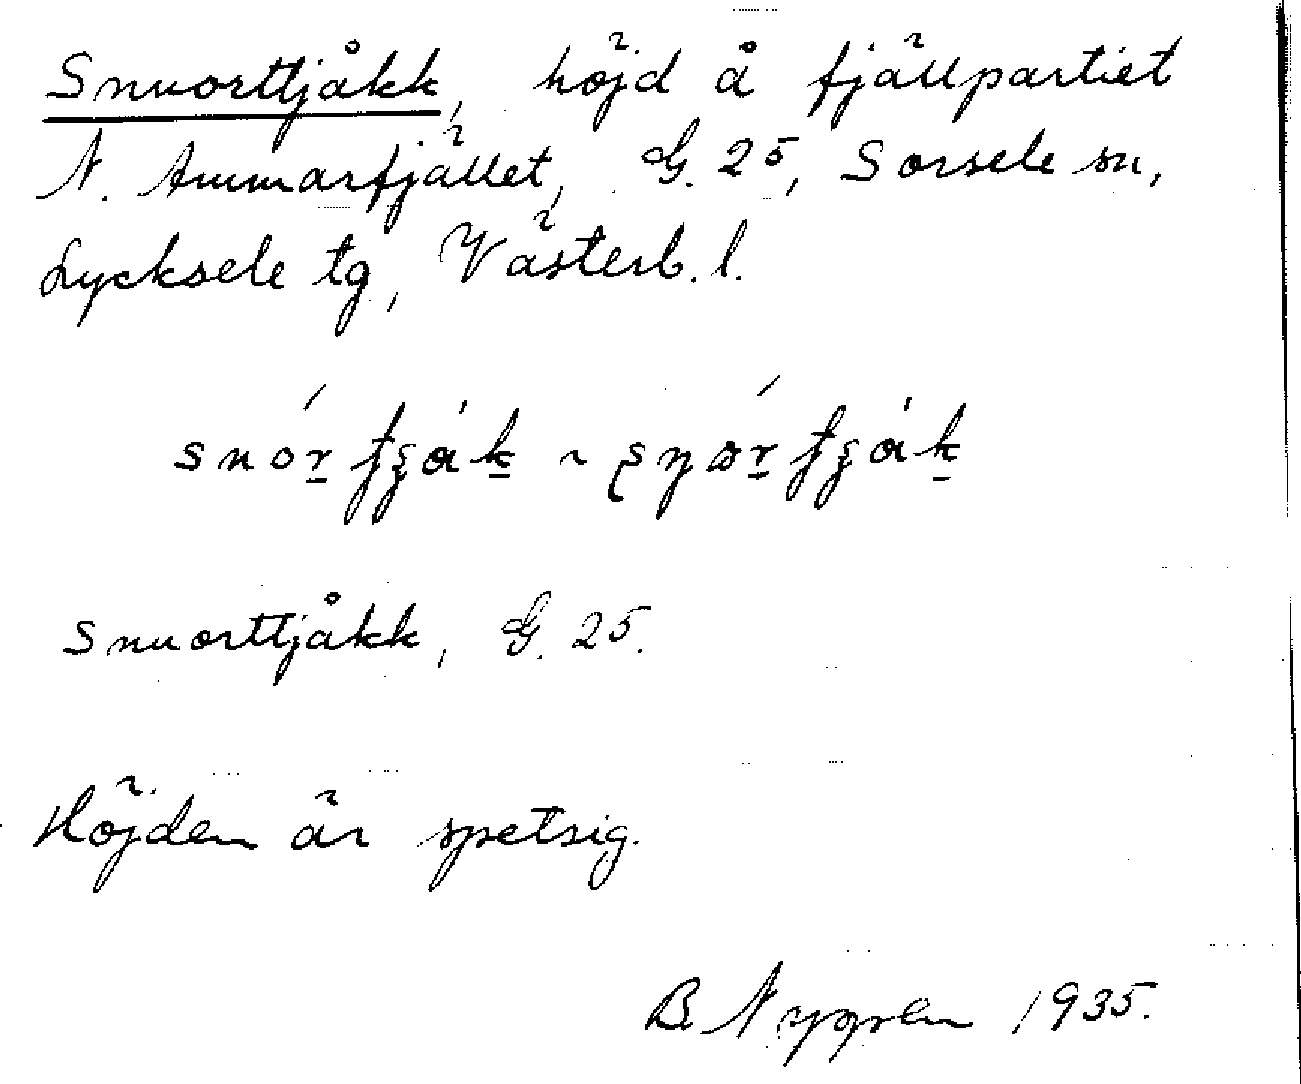 Snuorttjåkk, höjd å fjällpartiet
N. Ammarfjället, G. 25, Sorsele sn,
Lycksele tg, Västerb. l.
Snuorttjåkk, G. 25.
Höjden är spetsig.
B. Nygren 1935.